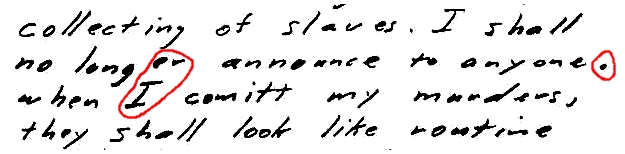 collecting of slaves. I shall
no longer announce to anyone.
when I comitt my murders,
they shall look like routine